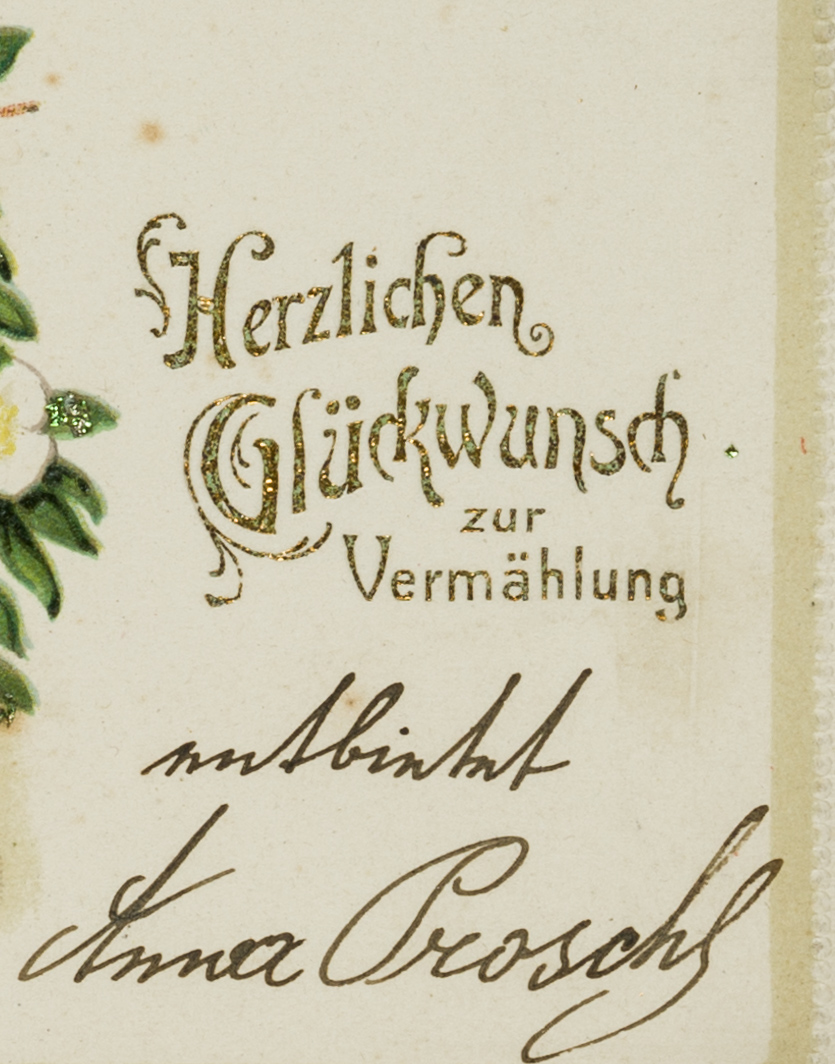 Herzlichen
Glückwunsch
zur
Vermählung
entbietet
Anna Proschl